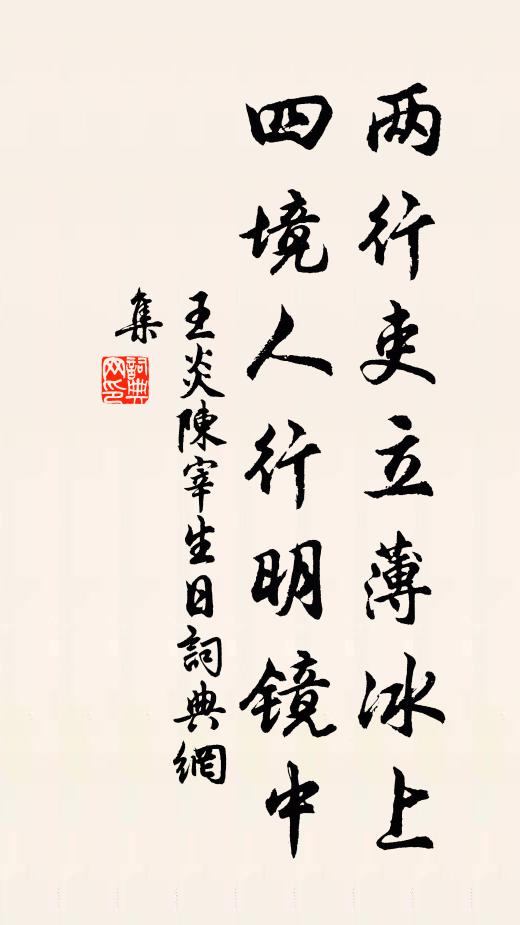 两行吏立薄冰上
四境人行明镜中
王炎陳宰生日詞典網
集
詞典
网印